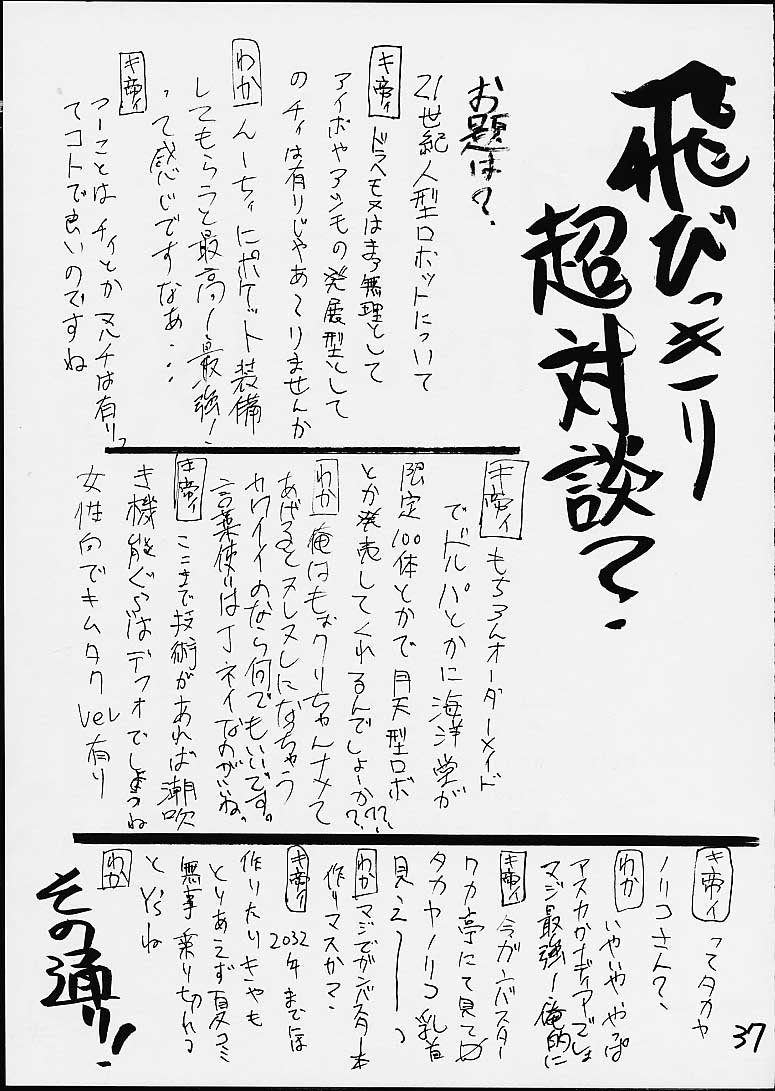 飛びっきり
超対談?
お題は?
21世紀人型ロボットについて
キ帝ィ ドラえもんはまず無理として
アイボやアシモの発展型として
のチィは有りじゃあーりませんか
わか んーちぃにポケット装備
してもらうと最高ー!最強!
って感じですなぁ・・・
キ帝ィ
つーことは チィとかマルチは有りっ
てコトで良いのですね
キ帝ィ もちろんオーダーメイド
でドルパとかに海洋堂が
限定100体とかで月天型ロボ
とか発売してくれるんでしょーか??
わか 俺はもぉクリちゃんナメて
あげるとヌレヌレになっちゃう
カワイイのなら何でもいいです。
言葉使いは丁ネイなのがいいね。
キ帝ィ ここまで技術があれば潮吹
き機能ぐらいはデフォでしょうね
女性向でキムタクVer有り
キ帝ィ ってタカヤ
ノリコさん?
わか いやいややっぱ
アスカかナディアでしょ
マジ最強!俺的に
キ帝ィ 今ガンバスター
ワカ亭にて見てⅢ
タカヤノリコ乳首
見えーーっ
わか マジでガンバスター本
作りマスか?
キ帝ィ 2032年までには
作りたりきゃも
とりあえず夏コミ
無事乗り切れっ
と Y'sね
わか
その通り!
37